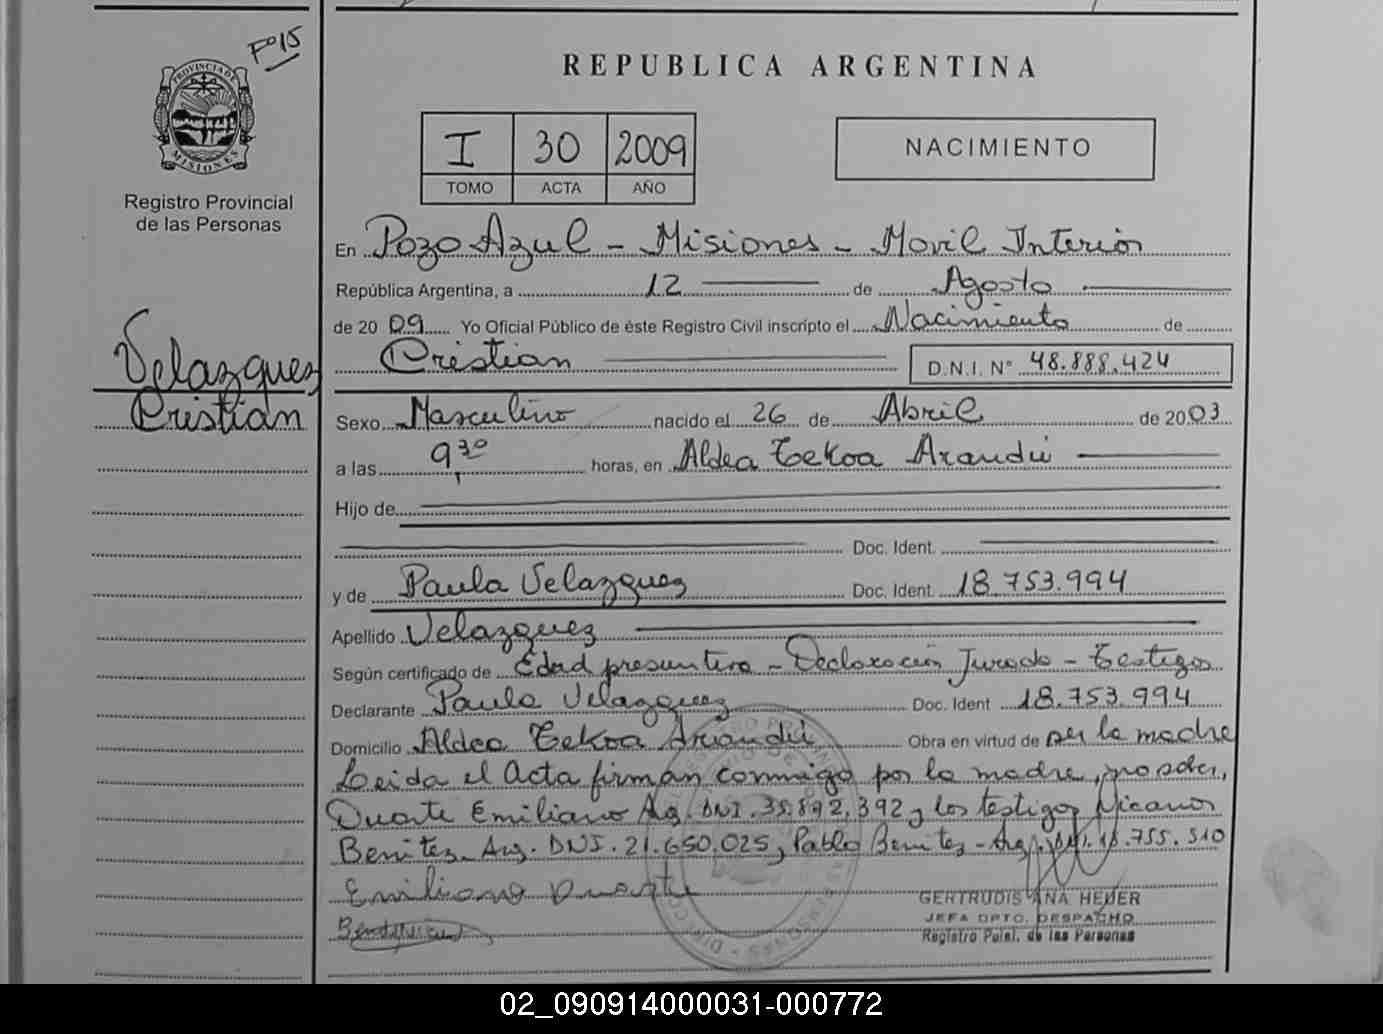 Fº15
PROVINCIA DE
MISIONES
Registro Provincial
de las Personas
Velazquez
Cristian
REPUBLICA ARGENTINA
I 30 2009
TOMO ACTA AÑO
NACIMIENTO
En Pozo Azul - Misiones - Movil Interior
República Argentina, a 12 de Agosto
de 20 09 Yo Oficial Público de éste Registro Civil inscripto el Nacimiento de
Cristian D.N.I. Nº 48.888.424
Sexo Masculino nacido el 26 de Abril de 2003
a las 9,30 horas, en Aldea Tekoa Arandú
Hijo de
Doc. Ident.
y de Paula Velazquez Doc. Ident. 18.753.994
Apellido Velazquez
Según certificado de Edad presuntiva - Declaración Jurada - Testigos
Declarante Paula Velazquez Doc. Ident 18.753.994
Domicilio Aldea Tekoa Arandú Obra en virtud de ser la madre
Leida el Acta firman conmigo por la madre, no saber,
Duarte Emiliano Arg. DNI. 892.392 y los testigos Nicanor
Benitez - Arg. DNI. 21.650.025, Pablo Benitez - Arg. 755.310
Emiliano Duarte
GERTRUDIS ANA HEUER
JEFA DPTO. DESPACHO
Registro Pcial. de las Personas
02_090914000031-000772